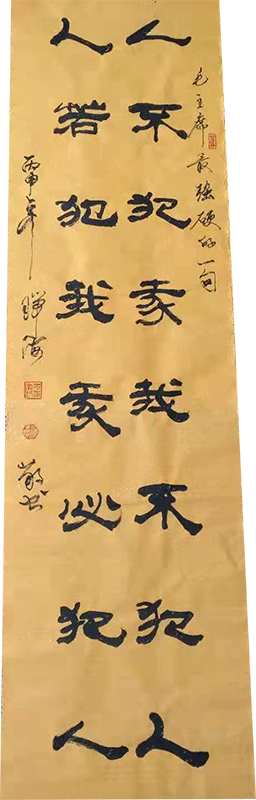 毛主席最强硬的一句
人不犯我我不犯人
人若犯我我必犯人
丙申年
敬书